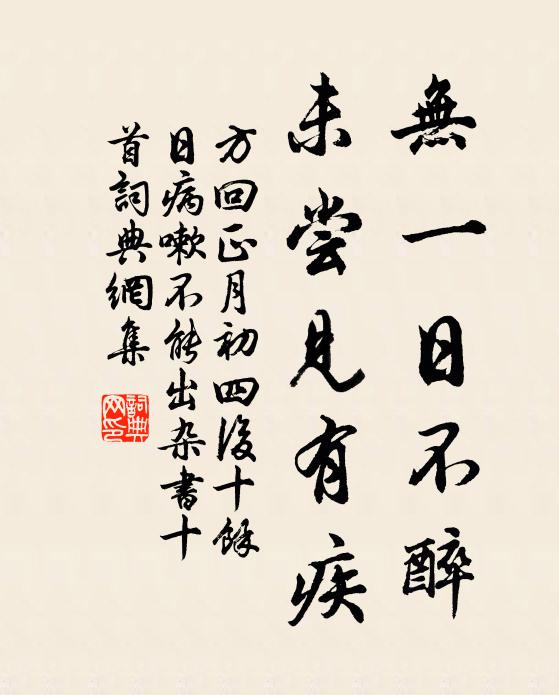 無一日不醉
未尝見有疾
方回正月初四後十餘
日病嗽不能出杂書十
首詞典網集
詞典网印